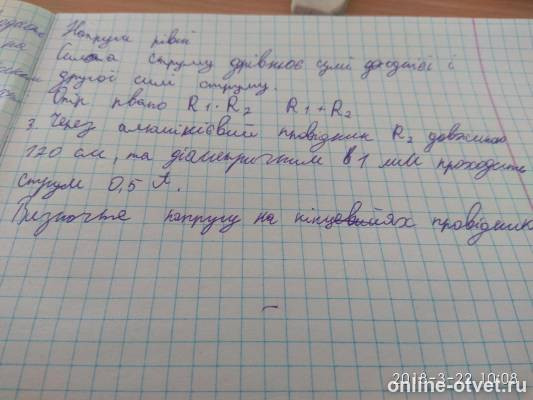 Напруги рівні
Сила струму дорівнює сумі і
другої силі струму.
Опір рвано R1·R2 R1+R2
3 Через алюмінієвий провідник R2 довжиною
120 см, та діаметричним в 1 мм проходить
струм 0,5 А.
Визначте напругу на кінцях провідника
2018-3-22 10:08
online-otvet.ru